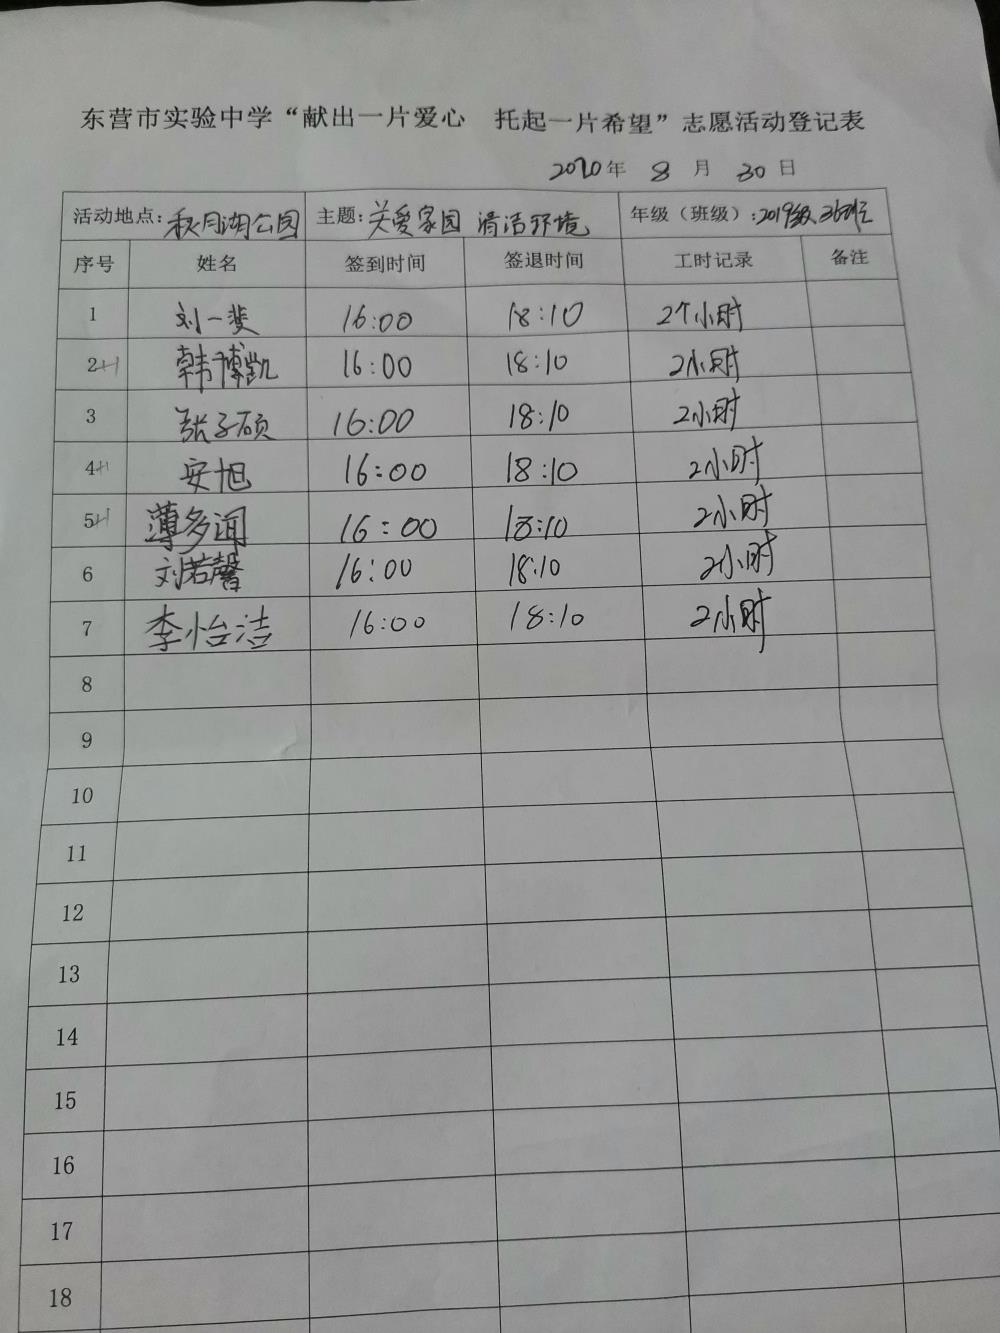 东营市实验中学“献出一片爱心 托起一片希望”志愿活动登记表
2020年 8 月 30 日
活动地点：秋月湖公园 主题：关爱家园 清洁环境 年级（班级）：2019级36班
序号 姓名 签到时间 签退时间 工时记录 备注
1 刘一斐 16:00 18:10 2个小时
2 韩博凯 16:00 18:10 2小时
3 张子硕 16:00 18:10 2小时
4 安旭 16:00 18:10 2小时
5 薄多闻 16:00 18:10 2小时
6 刘若馨 16:00 18:10 2小时
7 李怡洁 16:00 18:10 2小时
8
9
10
11
12
13
14
15
16
17
18